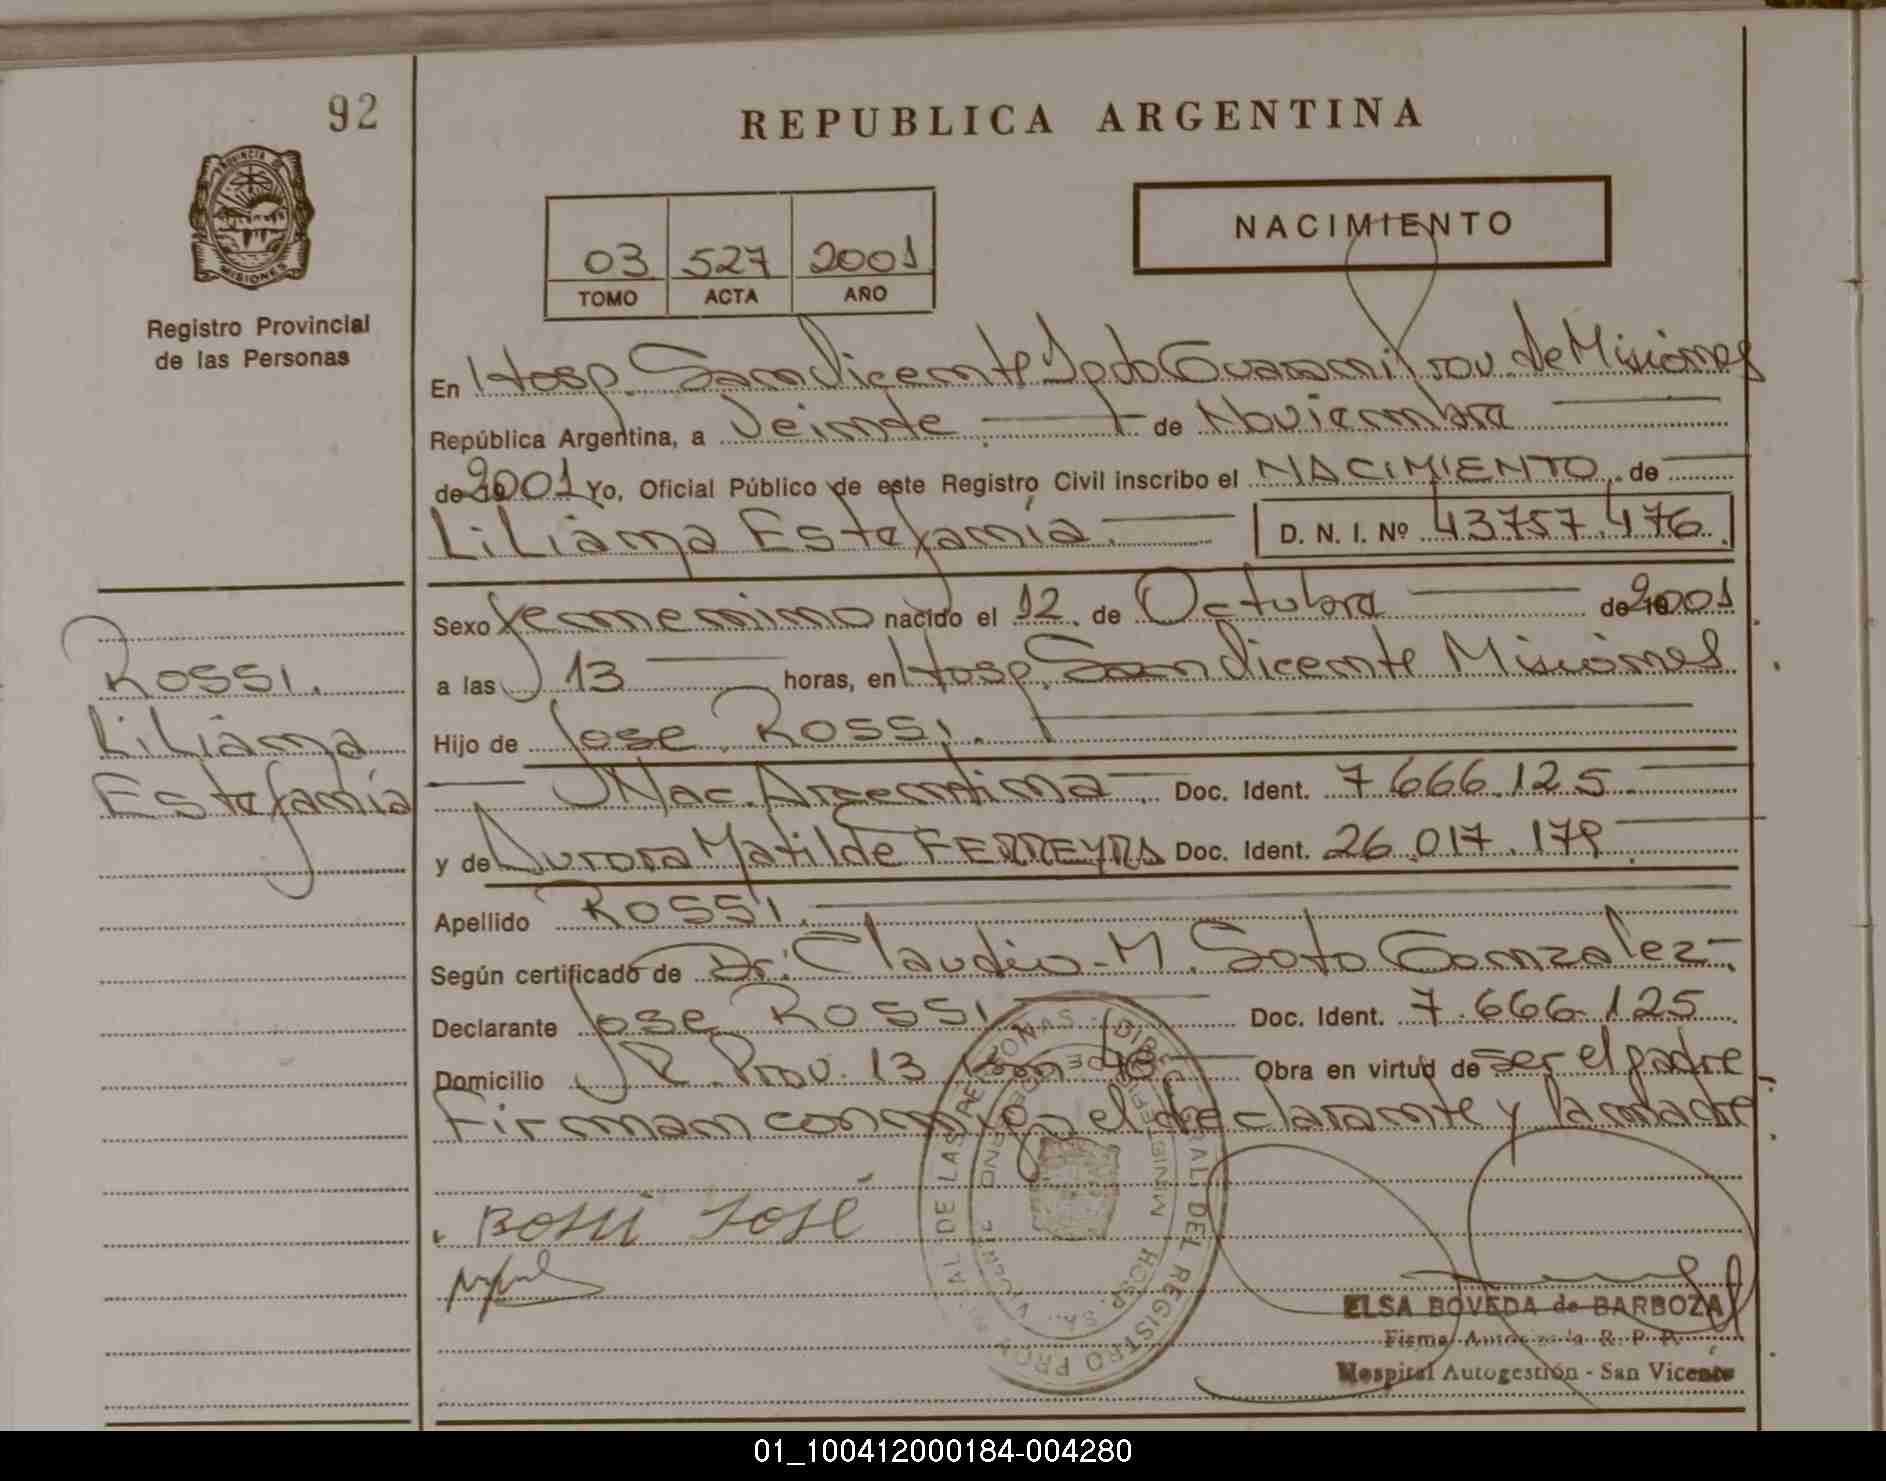 92
REPUBLICA ARGENTINA
PROVINCIA DE
MISIONES
Registro Provincial
de las Personas
03 527 2001
TOMO ACTA AÑO
NACIMIENTO
En Hosp. San Vicente Dpto Guarani Prov. de Misiones
República Argentina, a Veinte de Noviembre
de 2001 Yo, Oficial Público de este Registro Civil inscribo el NACIMIENTO de
Liliana Estefanía. D. N. I. Nº 43757.476.
Sexo Femenino nacido el 12 de Octubre de 2001
a las 13 horas, en Hosp. San Vicente Misiones
Rossi.
Liliana
Estefanía
Hijo de Jose Rossi.
Nac. Argentina Doc. Ident. 7.666.125
y de Aurora Matilde FERREYRA Doc. Ident. 26.017.179
Apellido ROSSI.
Según certificado de Dr. Claudio M. Soto Gonzalez
Declarante Jose ROSSI Doc. Ident. 7.666.125
Domicilio R. Prov. 13 Km 40 Obra en virtud de ser el padre
Firman conmigo el declarante y la madre
ROSSI JOSÉ
ELSA BOVEDA de BARBOZA
Firma Autorizada R. P. P.
Hospital Autogestión - San Vicente
01_100412000184-004280